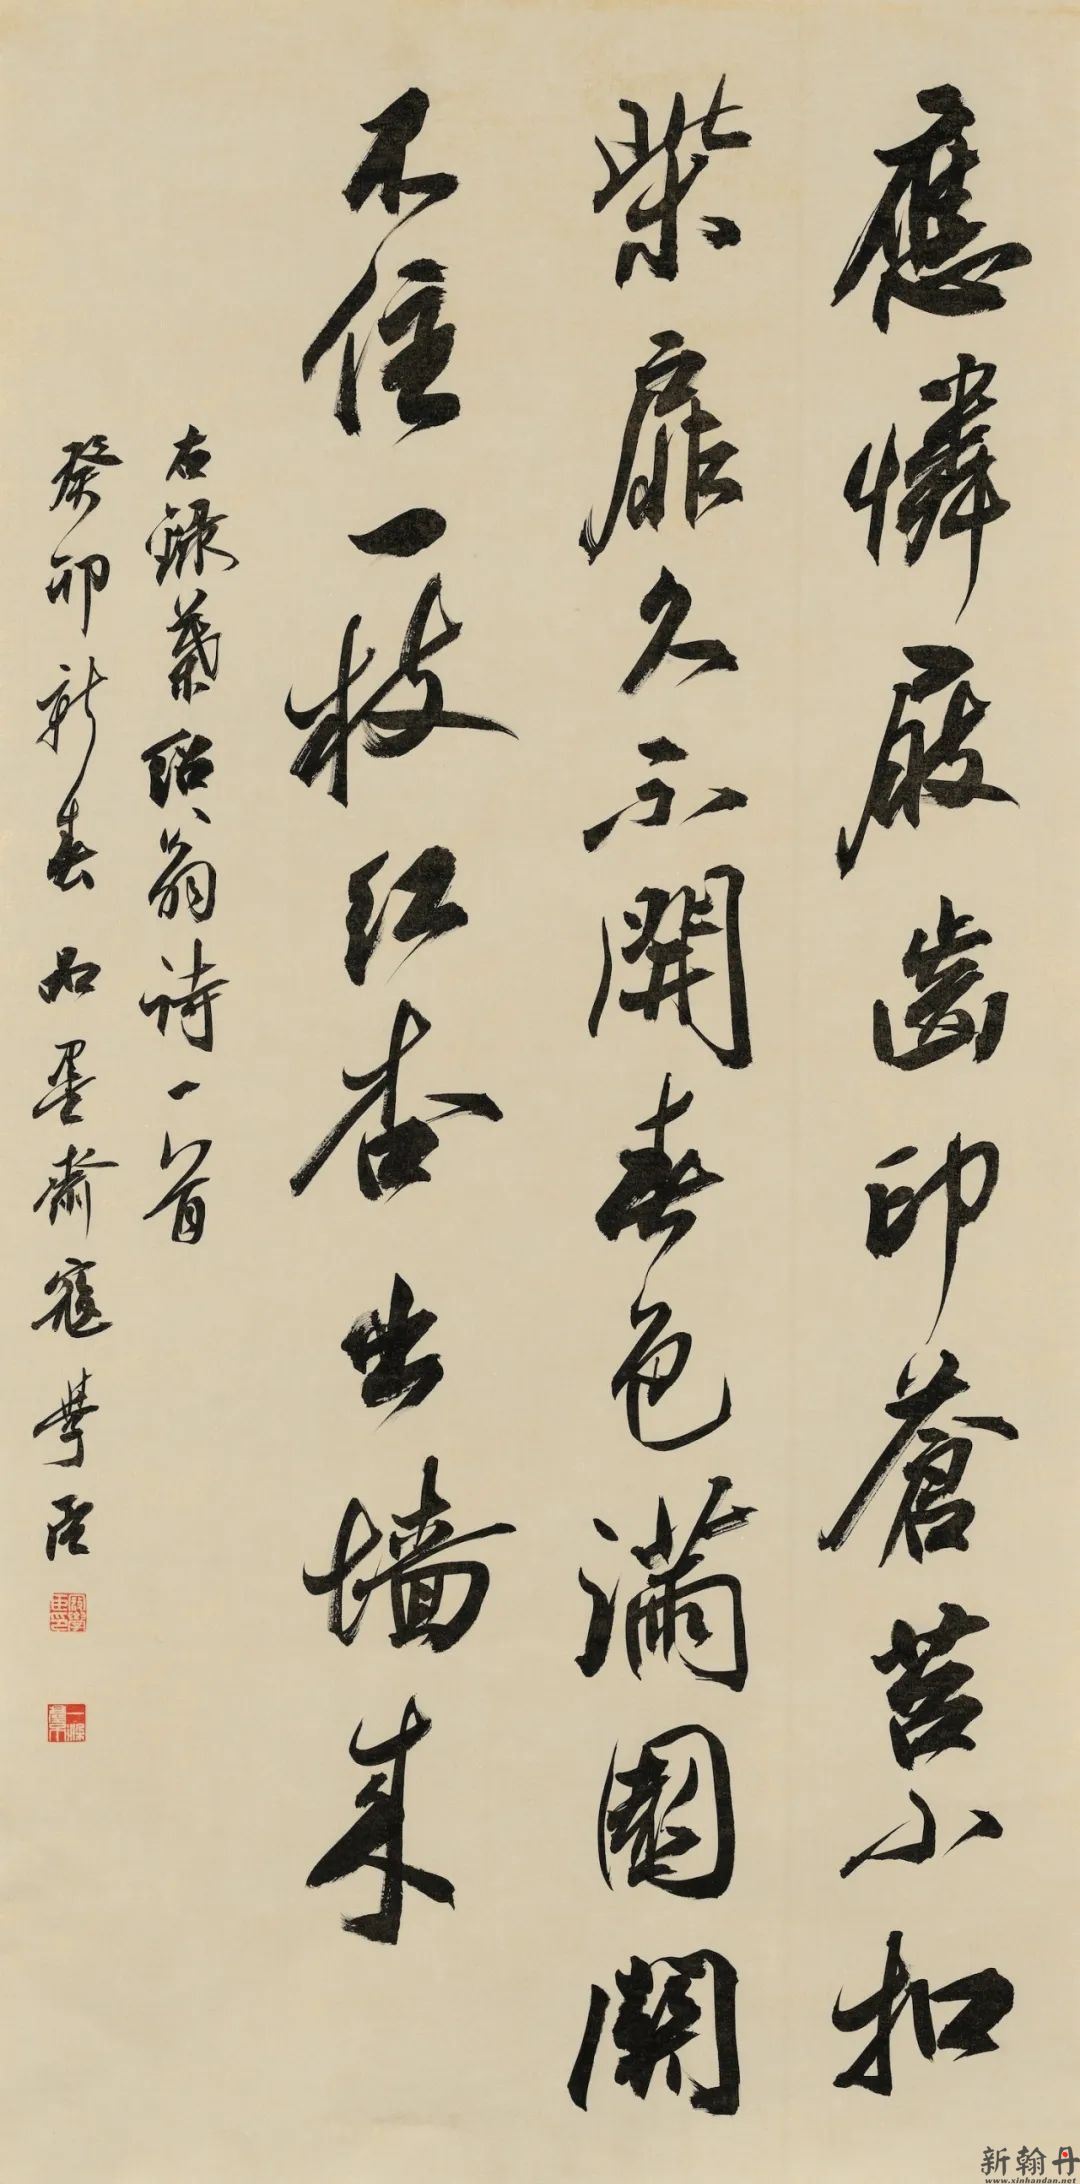 應憐屐齒印蒼苔小扣
柴扉久不開春色滿園關
不住一枝红杏出墙来
右録葉绍翁詩一首
癸卯新春 墨齋寇學臣
新翰丹
www.xinhandan.net